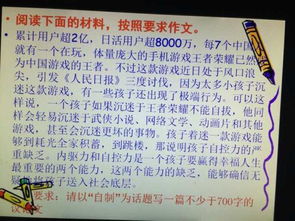 阅读下面的材料，按照要求作文。
累计用户超2亿，日活用户超8000万，每7个中国
就有一个在玩，体量庞大的手机游戏王者荣耀已然
为中国游戏的王者。不过这款游戏近日处于风口浪
尖，引发《人民日报》三度讨伐，因为太多孩子沉
迷这款游戏，有一些孩子还出现了极端行为。可以这
样说，一个孩子如果沉迷于王者荣耀不能自拔，他同
样会轻易沉迷于武侠小说、网络文学、动画片和其他
游戏，甚至会沉迷更坏的事物。孩子着迷一款游戏能
够到耗光全家积蓄，到跳楼，那说明孩子自控力的严
重缺乏。内驱力和自控力是一个孩子要赢得幸福人生
最重要的两个能力，这两个能力的缺乏，能够确信无
将孩子送入社会底层。
要求：请以“自制”为话题写一篇不少于700字的
议